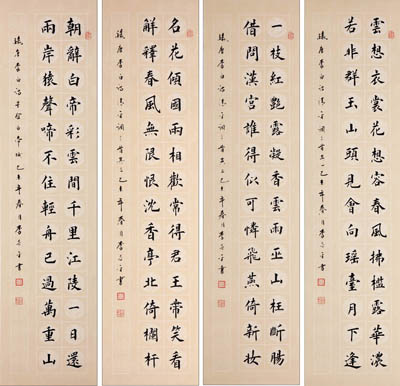 雲想衣裳花想容春風拂檻露華濃
若非群玉山頭見會向瑤臺月下逢
唐李白詩清平調
一枝紅艷露凝香雲雨巫山枉斷腸
借問漢宮誰得似可憐飛燕倚新妝
唐李白詩清平調
名花傾國兩相歡常得君王帶笑看
解釋春風無限恨沈香亭北倚欄杆
唐李白詩清平調
朝辭白帝彩雲間千里江陵一日還
兩岸猿聲啼不住輕舟已過萬重山
唐李白詩